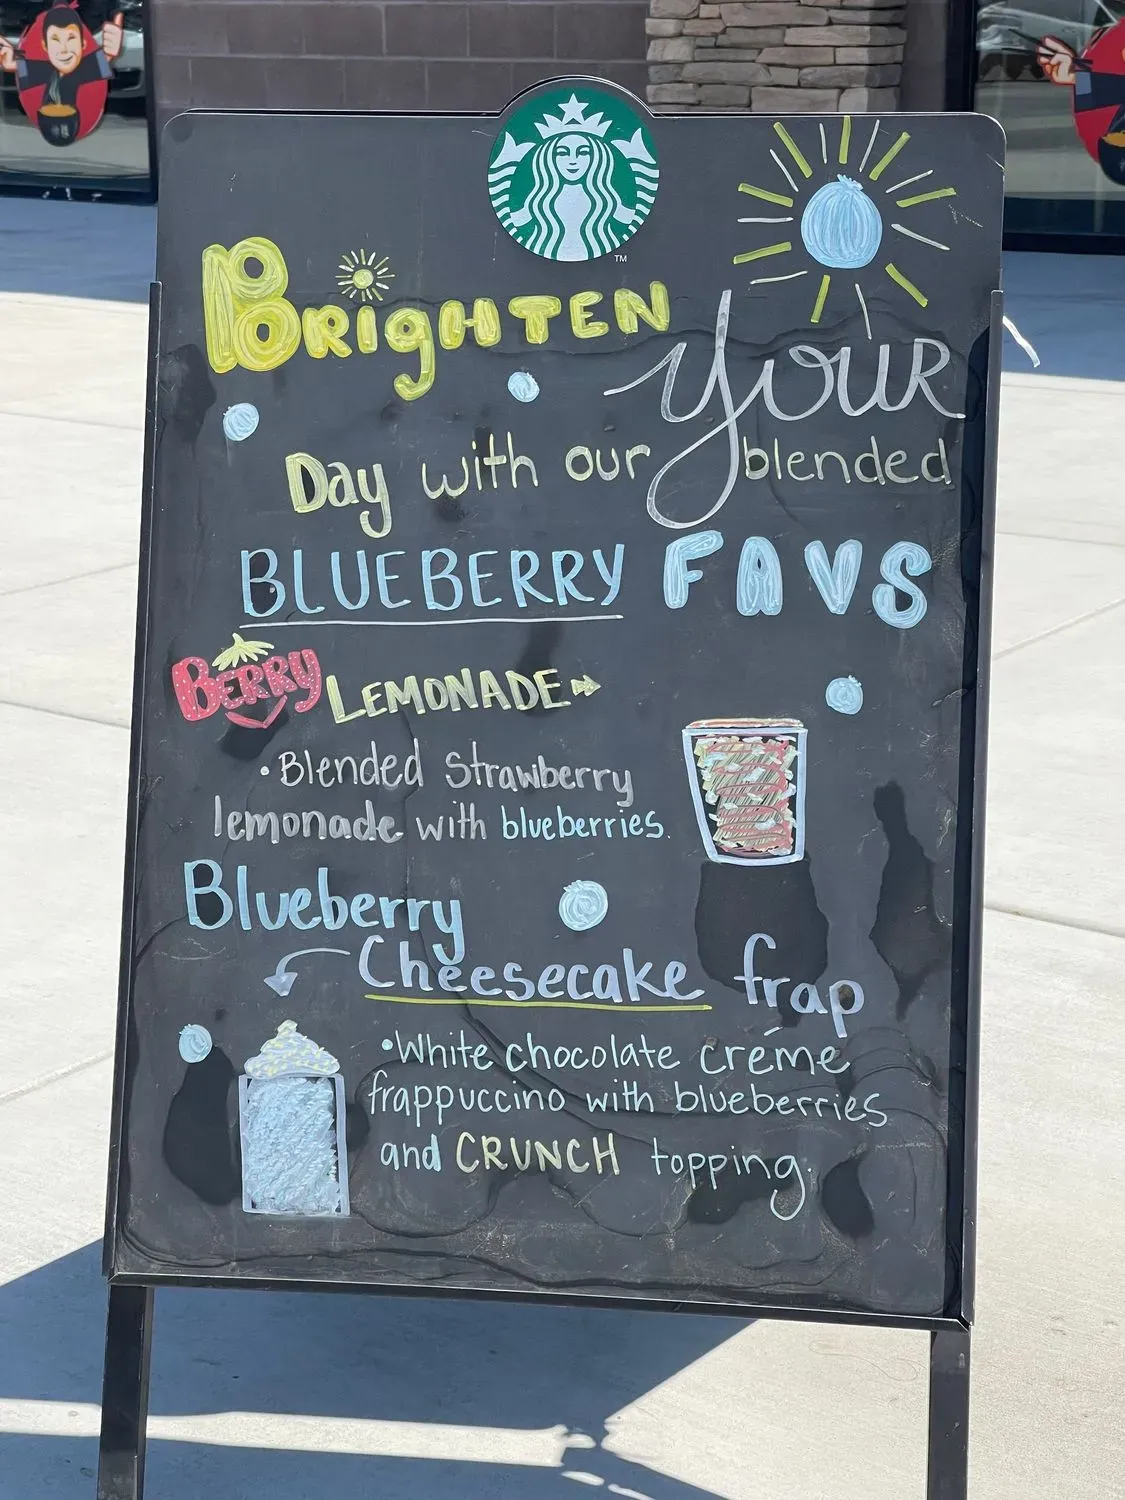 TM
BRIGHTEN
YOUR
Day with our blended
BLUEBERRY FAVS
BERRY LEMONADE
• Blended Strawberry
lemonade with blueberries.
Blueberry
Cheesecake frap
• White chocolate créme
frappuccino with blueberries
and CRUNCH topping.